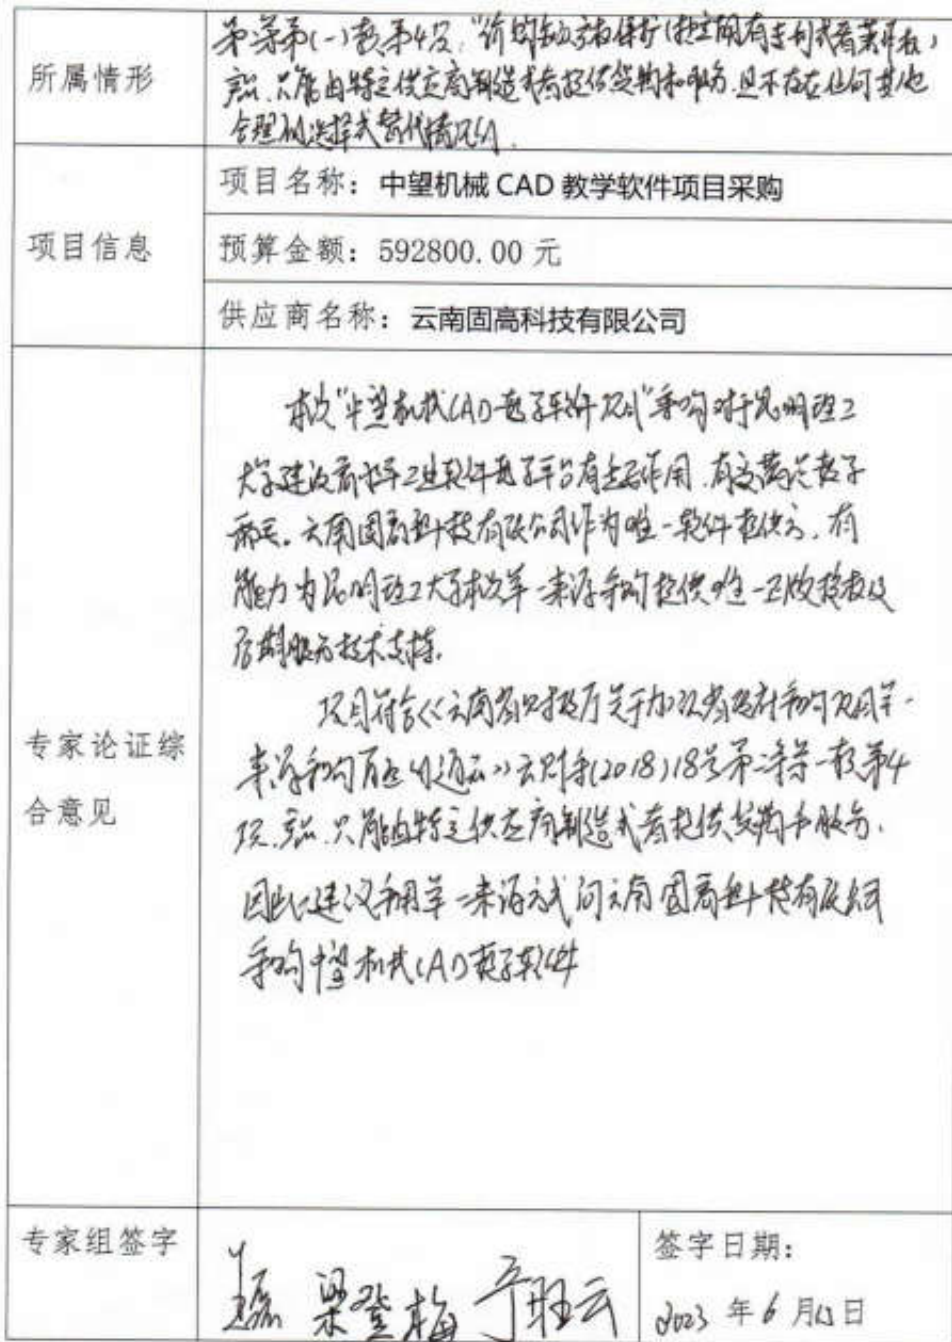 所属情形
第二条第(一)款第4项，"
只能由特定供应商制造或者提供货物和服务，且不存在任何其他
合理的选择或替代情况的。
项目信息
项目名称：中望机械 CAD 教学软件项目采购
预算金额：592800.00 元
供应商名称：云南固高科技有限公司
专家论证综
合意见
本次"中望机械CAD教学软件项目"采购对于昆明理工
大学建设高水平工业软件教学平台有主要作用，有效满足教学
需要。云南固高科技有限公司作为唯一软件提供方，有
能力为昆明理工大学本次单一来源采购提供唯一正版授权及
后期服务技术支持。
项目符合《云南省财政厅关于加强省级政府采购项目单一
来源采购管理的通知》云财采(2018)18号第二条第一款第4
项，只能由特定供应商制造或者提供货物和服务，
因此建议采用单一来源方式向云南固高科技有限公司
采购中望机械CAD教学软件
专家组签字
梁登梅
签字日期：
2023 年 6 月 日